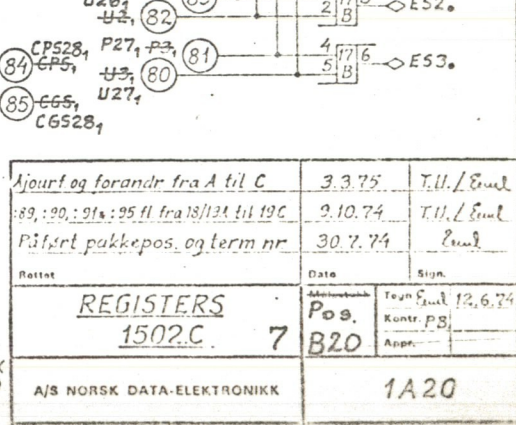 U2, 82
2 B ES2.
CPS28, P27, P3, 81 4 17 6 ES3.
84 CPS, U3, 80 5 B
85 CGS, U27,
CGS28,
Ajourf og forandr fra A til C 3.3.75 T.U./
:89, :90, : 91 : 95 fl fra 18/131 til 19C 9.10.74 T.U./
Påført pakkepos. og term nr 30.7.74
Rettet Dato Sign.
REGISTERS
1502.C 7
Pos.
B20
Tegn 12.6.74
Kontr. PS
Appr.
A/S NORSK DATA-ELEKTRONIKK 1A20